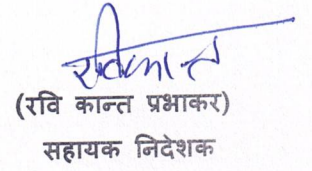 रविकान्त
(रवि कान्त प्रभाकर)
सहायक निदेशक